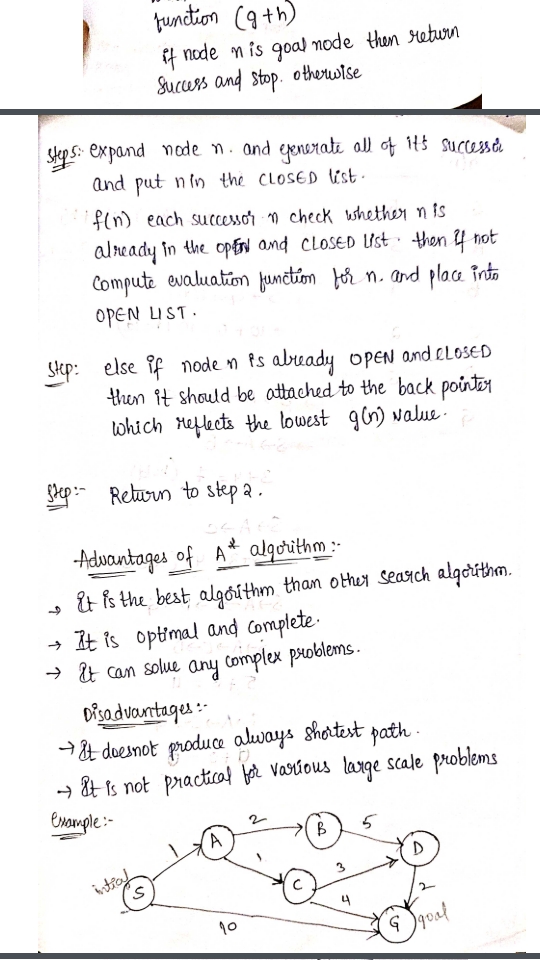 function (g+h)
if node n is goal node then return
Success and stop. otherwise
Step5:- expand node n. and generate all of its successor
and put n in the CLOSED list.
f(n) each successor n check whether n is
already in the open and CLOSED List. then if not
compute evaluation function for n. and place into
OPEN LIST.
Step: else if node n is already OPEN and CLOSED
then it should be attached to the back pointer
which reflects the lowest g(n) value.
Step:- Return to step 2.
Advantages of A* algorithm:-
→ It is the best algorithm than other search algorithm.
→ It is optimal and complete.
→ It can solve any complex problems.
Disadvantages:-
→ It doesnot produce always shortest path.
→ It is not practical for various large scale problems
Example:-
2
B
5
A
1
1
D
3
intial
S
C
4
2
10
G
goal